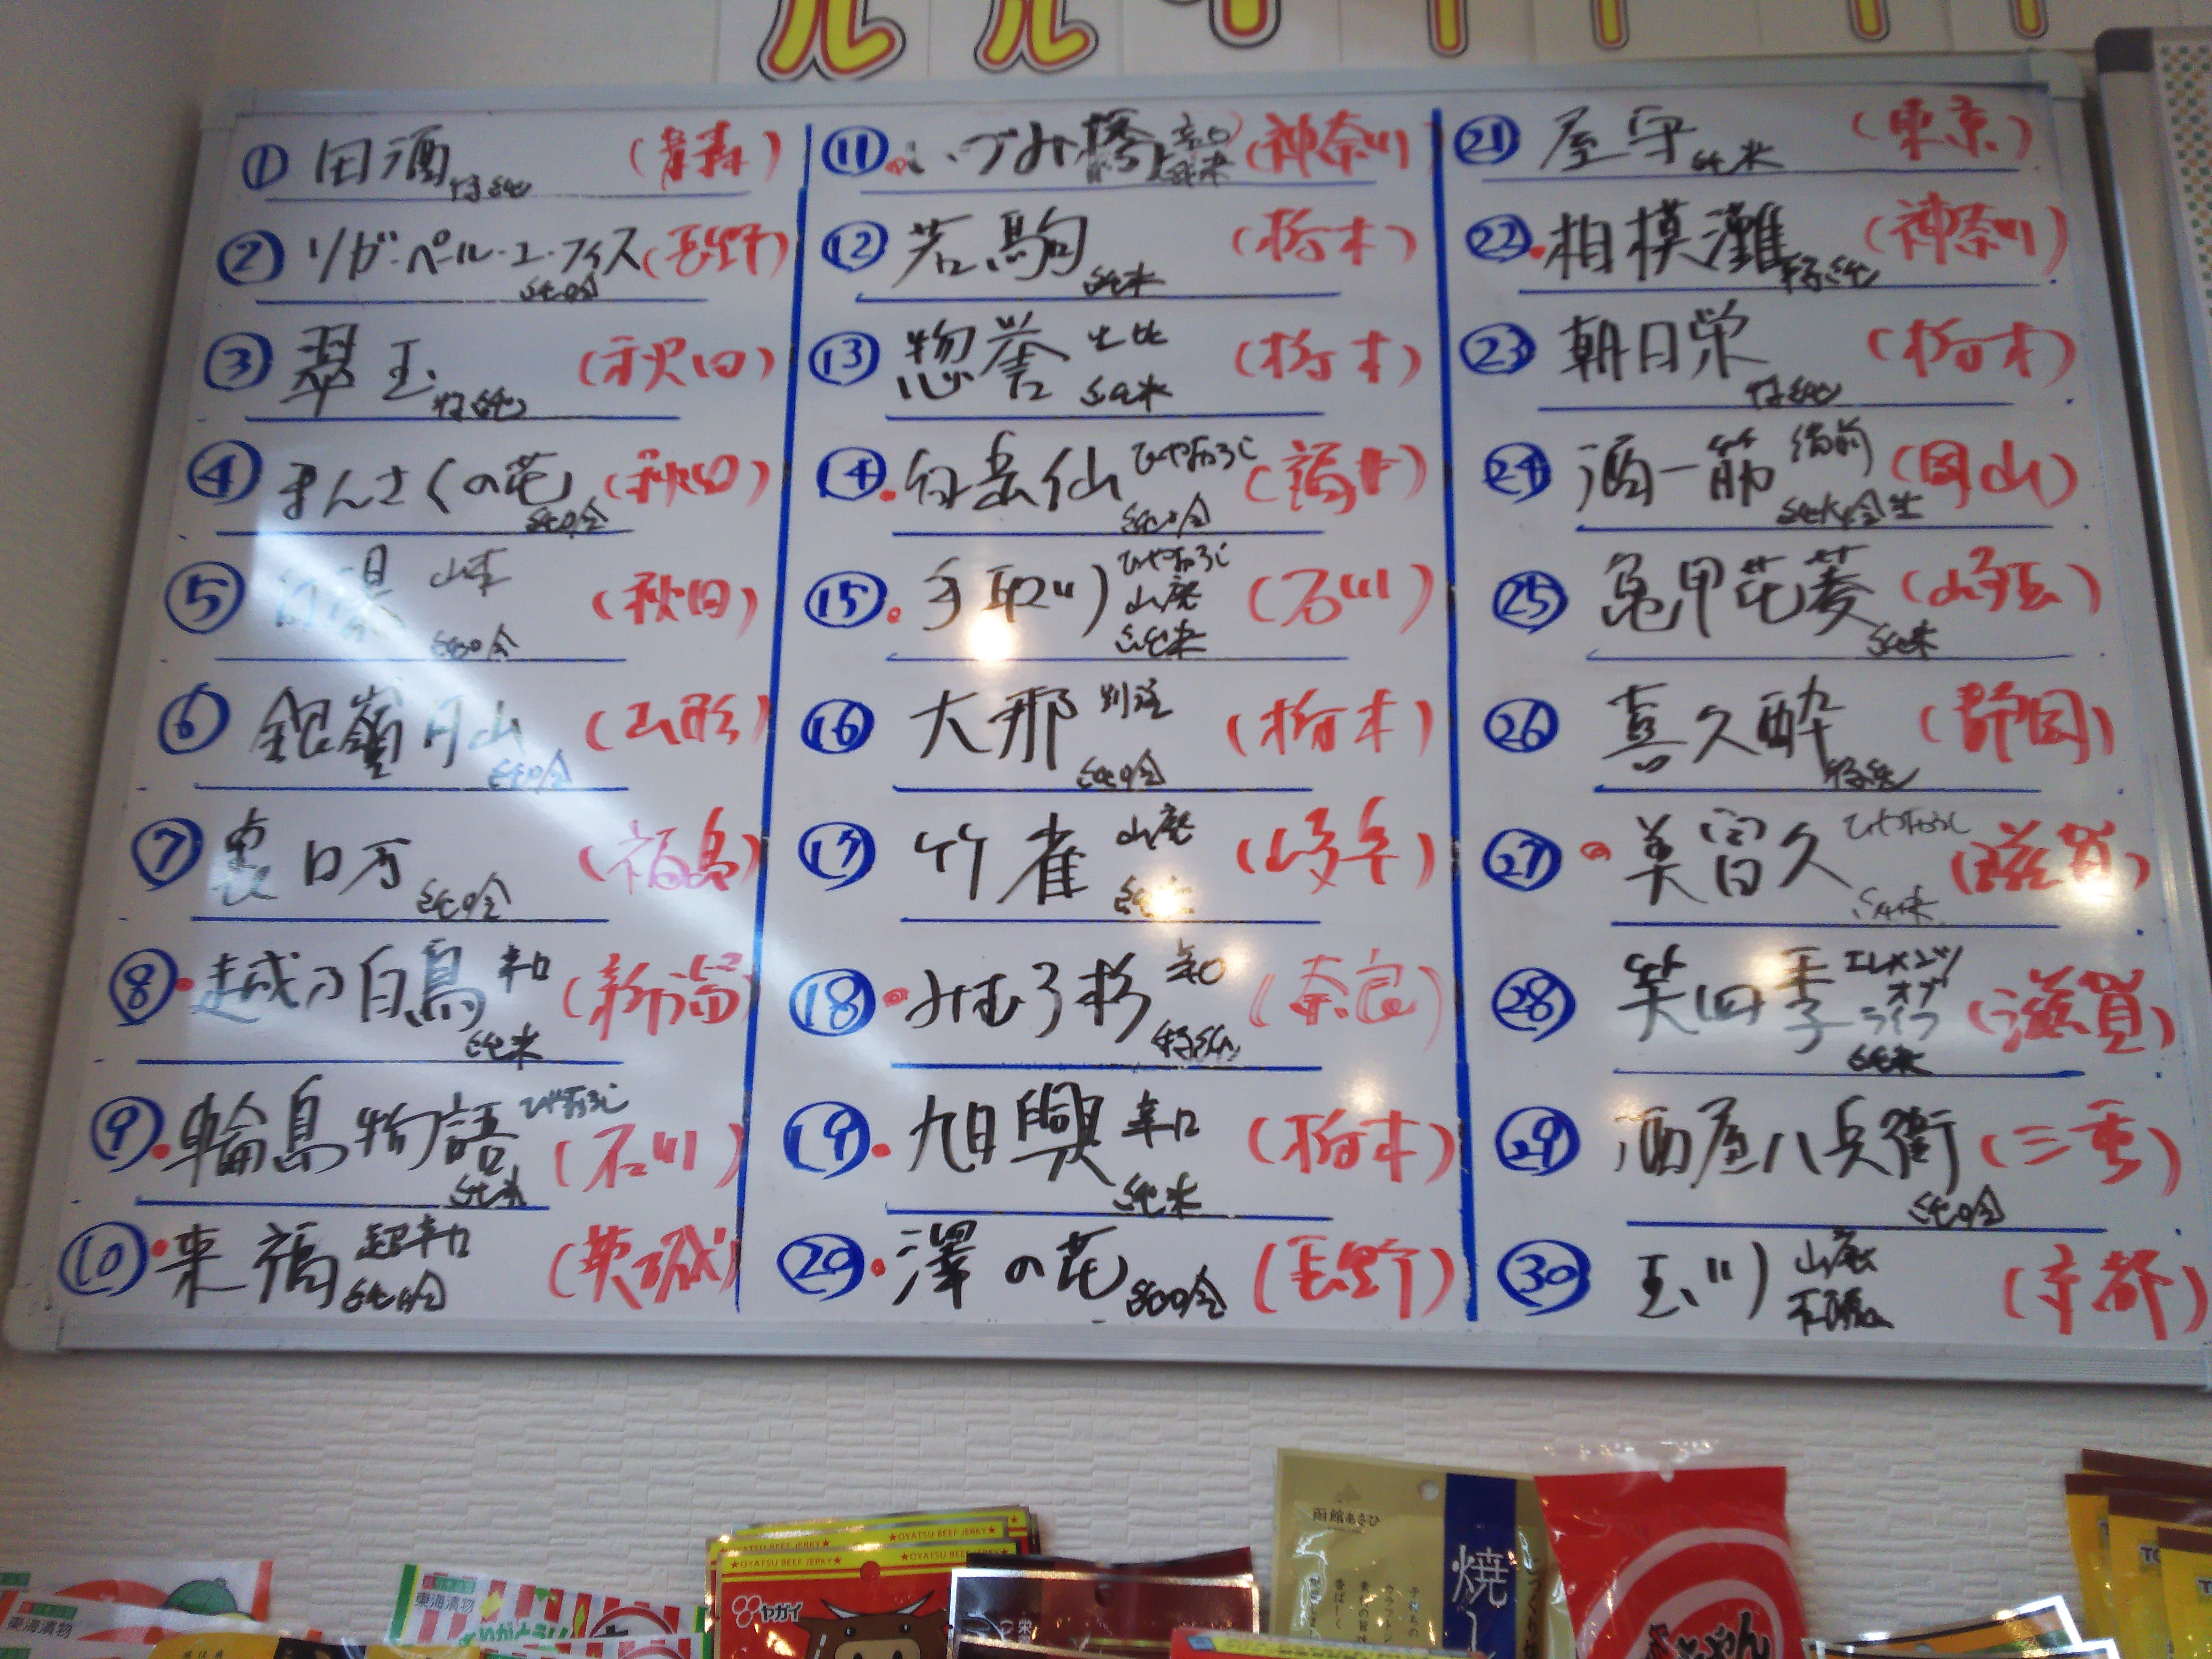 ① 田酒 特純 (青森)
② ソガ・ペール・エ・フィス 純吟 (長野)
③ 翠玉 特純 (秋田)
④ まんさくの花 純吟 (秋田)
⑤ 純吟 (秋田)
⑥ 銀嶺月山 純吟 (山形)
⑦ 裏ロ万 純吟 (福島)
⑧ 越乃白鳥 辛口 純米 (新潟)
⑨ 輪島物語 ひやおろし 純米 (石川)
⑩ 来福 超辛口 純吟 (茨城)
⑪ いづみ橋 辛口 純米 (神奈川)
⑫ 若駒 純米 (栃木)
⑬ 惣誉 生酛 純米 (栃木)
⑭ 白岳仙 ひやおろし 純吟 (福井)
⑮ 手取川 ひやおろし 山廃 純米 (石川)
⑯ 大那 別誂 純吟 (栃木)
⑰ 竹雀 山廃 純米 (岐阜)
⑱ みむろ杉 辛口 特純 (奈良)
⑲ 旭興 辛口 純米 (栃木)
⑳ 澤の花 純吟 (長野)
㉑ 屋守 純米 (東京)
㉒ 相模灘 特純 (神奈川)
㉓ 朝日栄 特純 (栃木)
㉔ 酒一筋 備前 純米吟生 (岡山)
㉕ 亀甲花菱 純米 (埼玉)
㉖ 喜久酔 特純 (静岡)
㉗ 美冨久 ひやおろし 純米 (滋賀)
㉘ 笑四季 エレメンツ オブ ライフ 純米 (滋賀)
㉙ 酒屋八兵衛 純吟 (三重)
㉚ 玉川 山廃 (京都)
★OYATSU BEEF JERKY★
★OYATSU BEEF JERKY★
ヤガイ
東海漬物
東海漬物
函館あさひ
焼